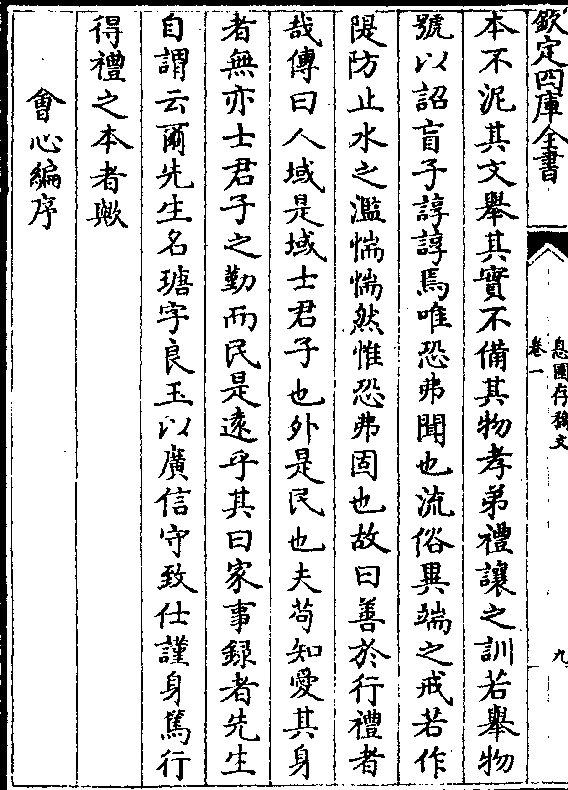 欽定四庫全書
息園存稿文
卷一
九
本不泥其文舉其實不備其物孝弟禮讓之訓若舉物
號以詔盲子諄諄焉唯恐弗聞也流俗異端之戒若作
隄防止水之濫惴惴然惟恐弗固也故曰善於行禮者
哉傳曰人域是域士君子也外是民也夫苟知愛其身
者無亦士君子之勤而民是遠乎其曰家事錄者先生
自謂云爾先生名瑭字良玉以廣信守致仕謹身篤行
得禮之本者歟
會心編序